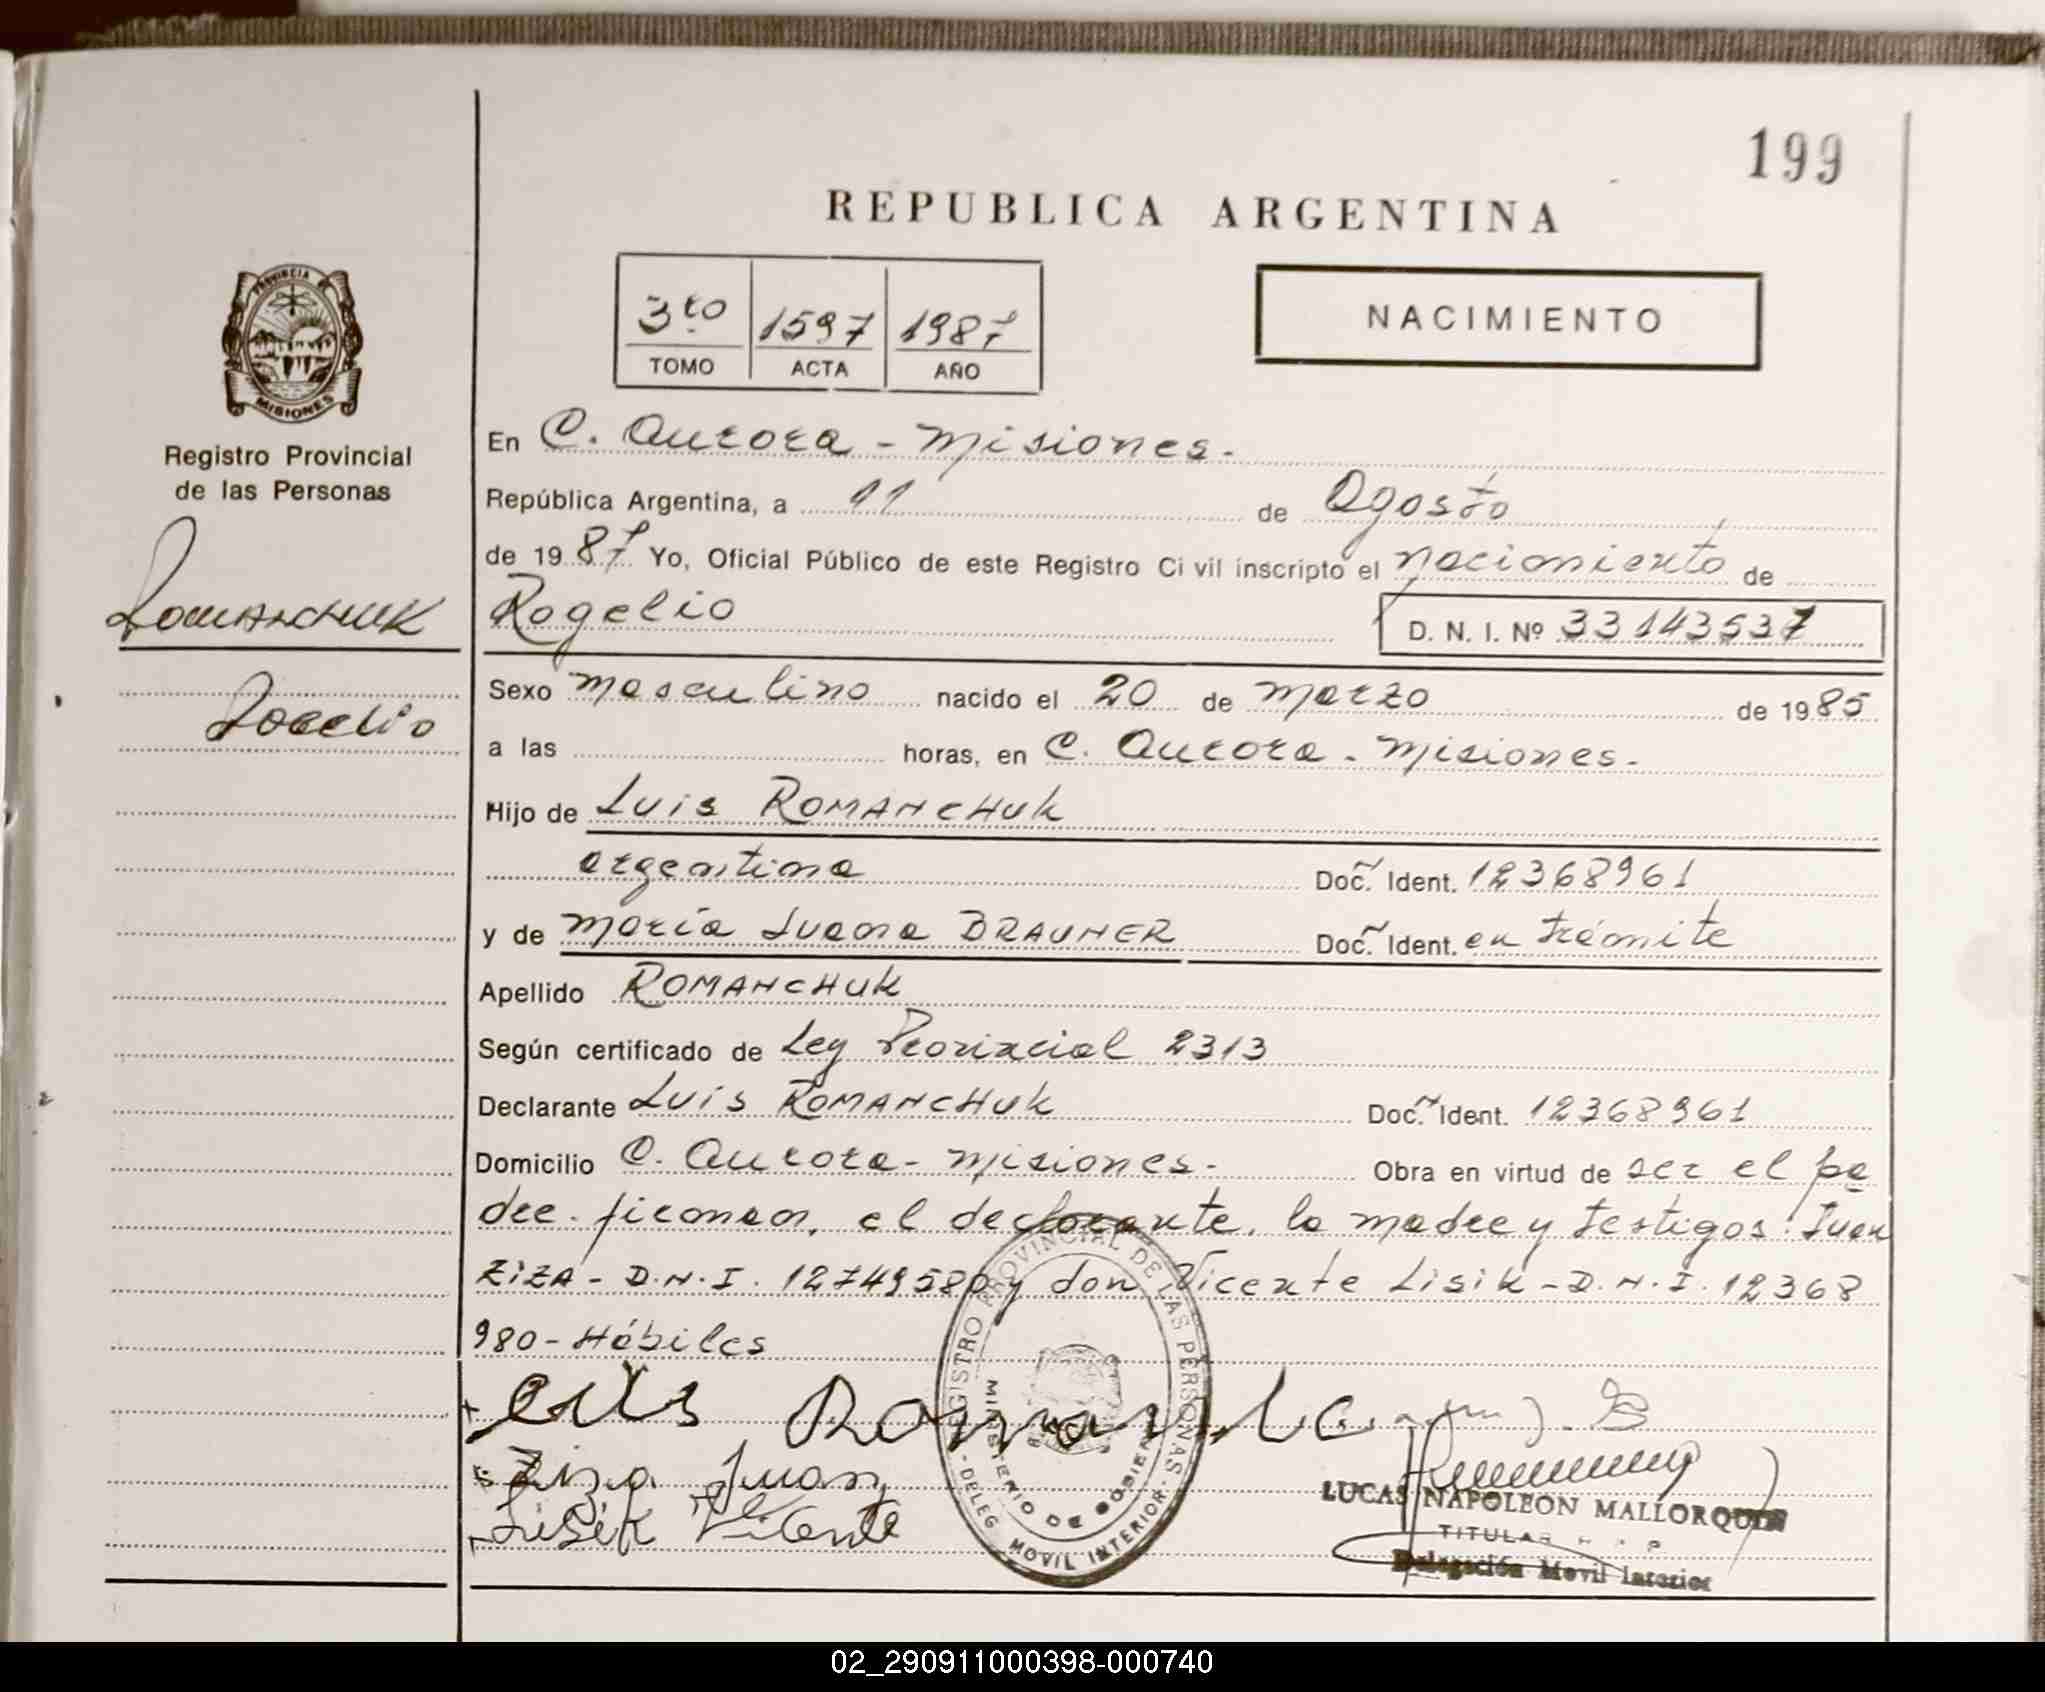 199
REPUBLICA ARGENTINA
PROVINCIA DE
MISIONES
Registro Provincial
de las Personas
3to 1597 1987
TOMO ACTA AÑO
NACIMIENTO
En C. Aurora - Misiones.
República Argentina, a 11 de Agosto
de 1987 Yo, Oficial Público de este Registro Civil inscripto el nacimiento de
Romanchuk
Rogelio D. N. I. Nº 33143537
Rogelio
Sexo masculino nacido el 20 de marzo de 1985
a las horas, en C. Aurora - Misiones.
Hijo de Luis ROMANCHUK
argentina Doc. Ident. 12368961
y de María Juana BRAUNER Doc. Ident. en trámite
Apellido ROMANCHUK
Según certificado de Ley Provincial 2313
Declarante Luis ROMANCHUK Doc. Ident. 12368961
Domicilio C. Aurora - Misiones. Obra en virtud de ser el pa
dre. firman, el declarante, la madre y testigos: Juan
ZIZA - D.N.I. 12749580 y don Vicente Lisik - D.N.I. 12368
980 - Hábiles
REGISTRO PROVINCIAL DE LAS PERSONAS
MINISTERIO DE GOBIERNO
DELEG MOVIL INTERIOR
Ziza Juan
Lisik Vicente
LUCAS NAPOLEON MALLORQUIN
TITULAR
Delegación Movil Interior
02_290911000398-000740